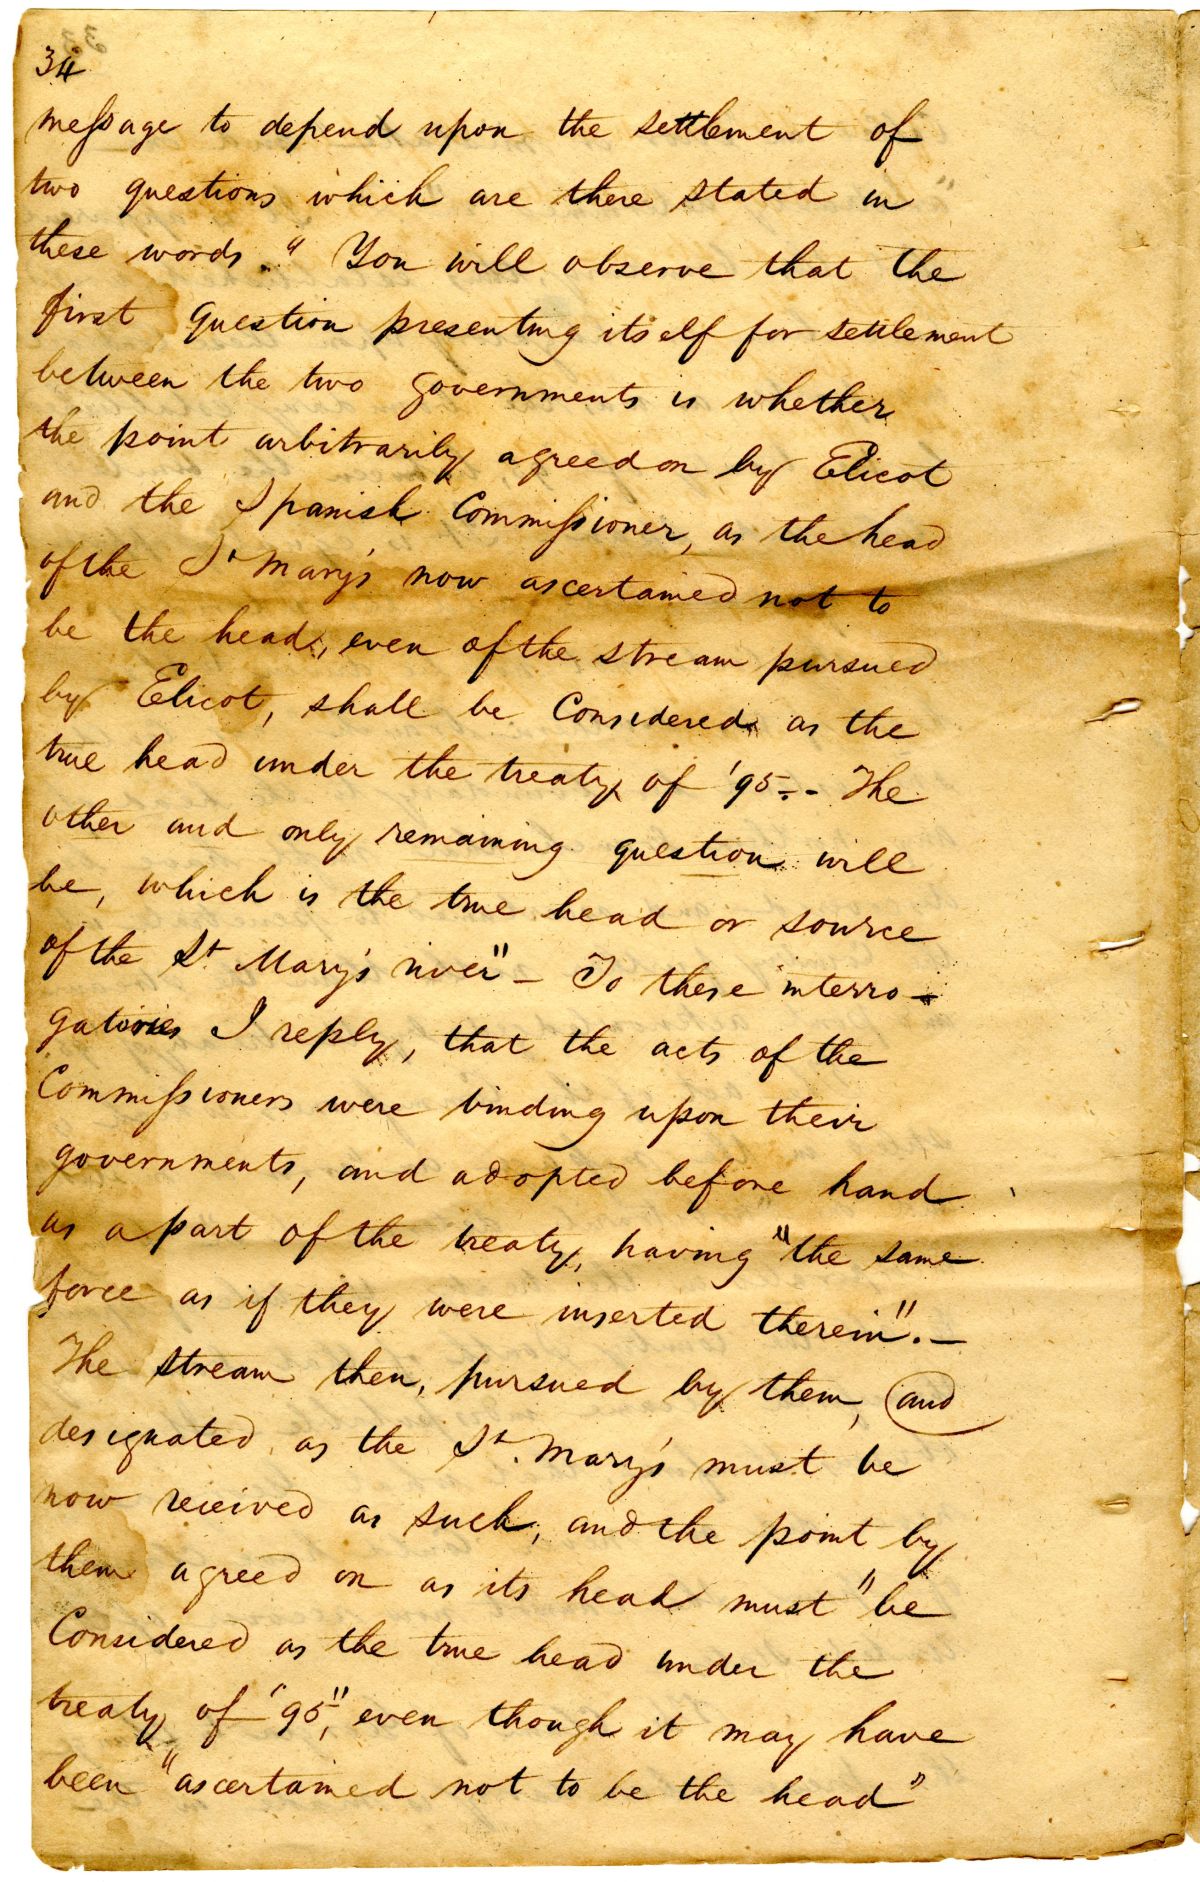 34
message to depend upon the settlement of
two questions which are there stated in
these words. " You will observe that the
first question presenting itself for settlement
between the two governments is whether
the point arbitrarily agreed on by Elicot
and the Spanish Commissioner, as the head
of the St Mary's now ascertained not to
be the head, even of the stream pursued
by Elicot, shall be Considered as the
true head under the treaty of '95.- The
other and only remaining question will
be, which is the true head or source
of the St. Mary's river" - To these interro-
gatories I reply, that the acts of the
Commissioners were binding upon their
governments, and adopted before hand
as a part of the treaty, having "the same
force as if they were inserted therein".-
The stream then, pursued by them, and
designated as the St. Mary's must be
now received as such, and the point by
them agreed on as its head must "be
Considered as the true head under the
treaty of '95", even though it may have
been "ascertained not to be the head"